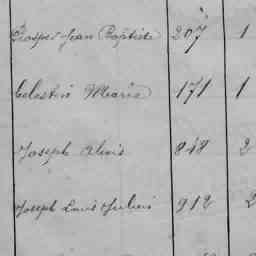 Prosper Jean Baptiste 207 1
Celestin Marie 171 1
Joseph Alexis 848 2
Joseph Louis Julien 912 2